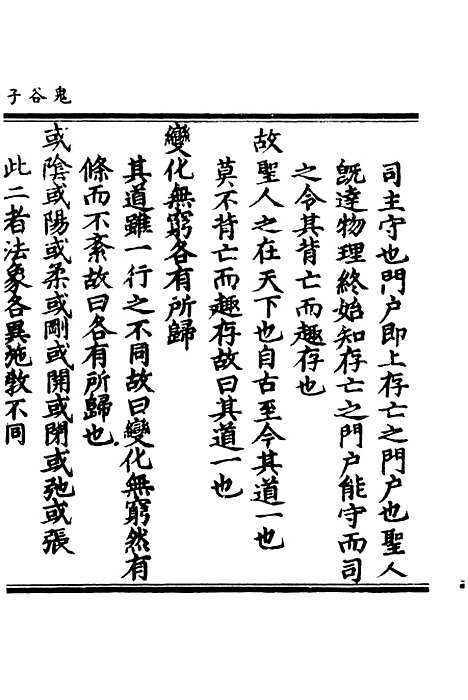 鬼谷子
司主守也門户即上存亡之門户也聖人
旣達物理終始知存亡之門户能守而司
之令其背亡而趣存也
故聖人之在天下也自古至今其道一也
莫不背亡而趣存故曰其道一也
變化無窮各有所歸
其道雖一行之不同故曰變化無窮然有
條而不紊故曰各有所歸也
或陰或陽或柔或剛或開或閉或弛或張
此二者法象各異施教不同